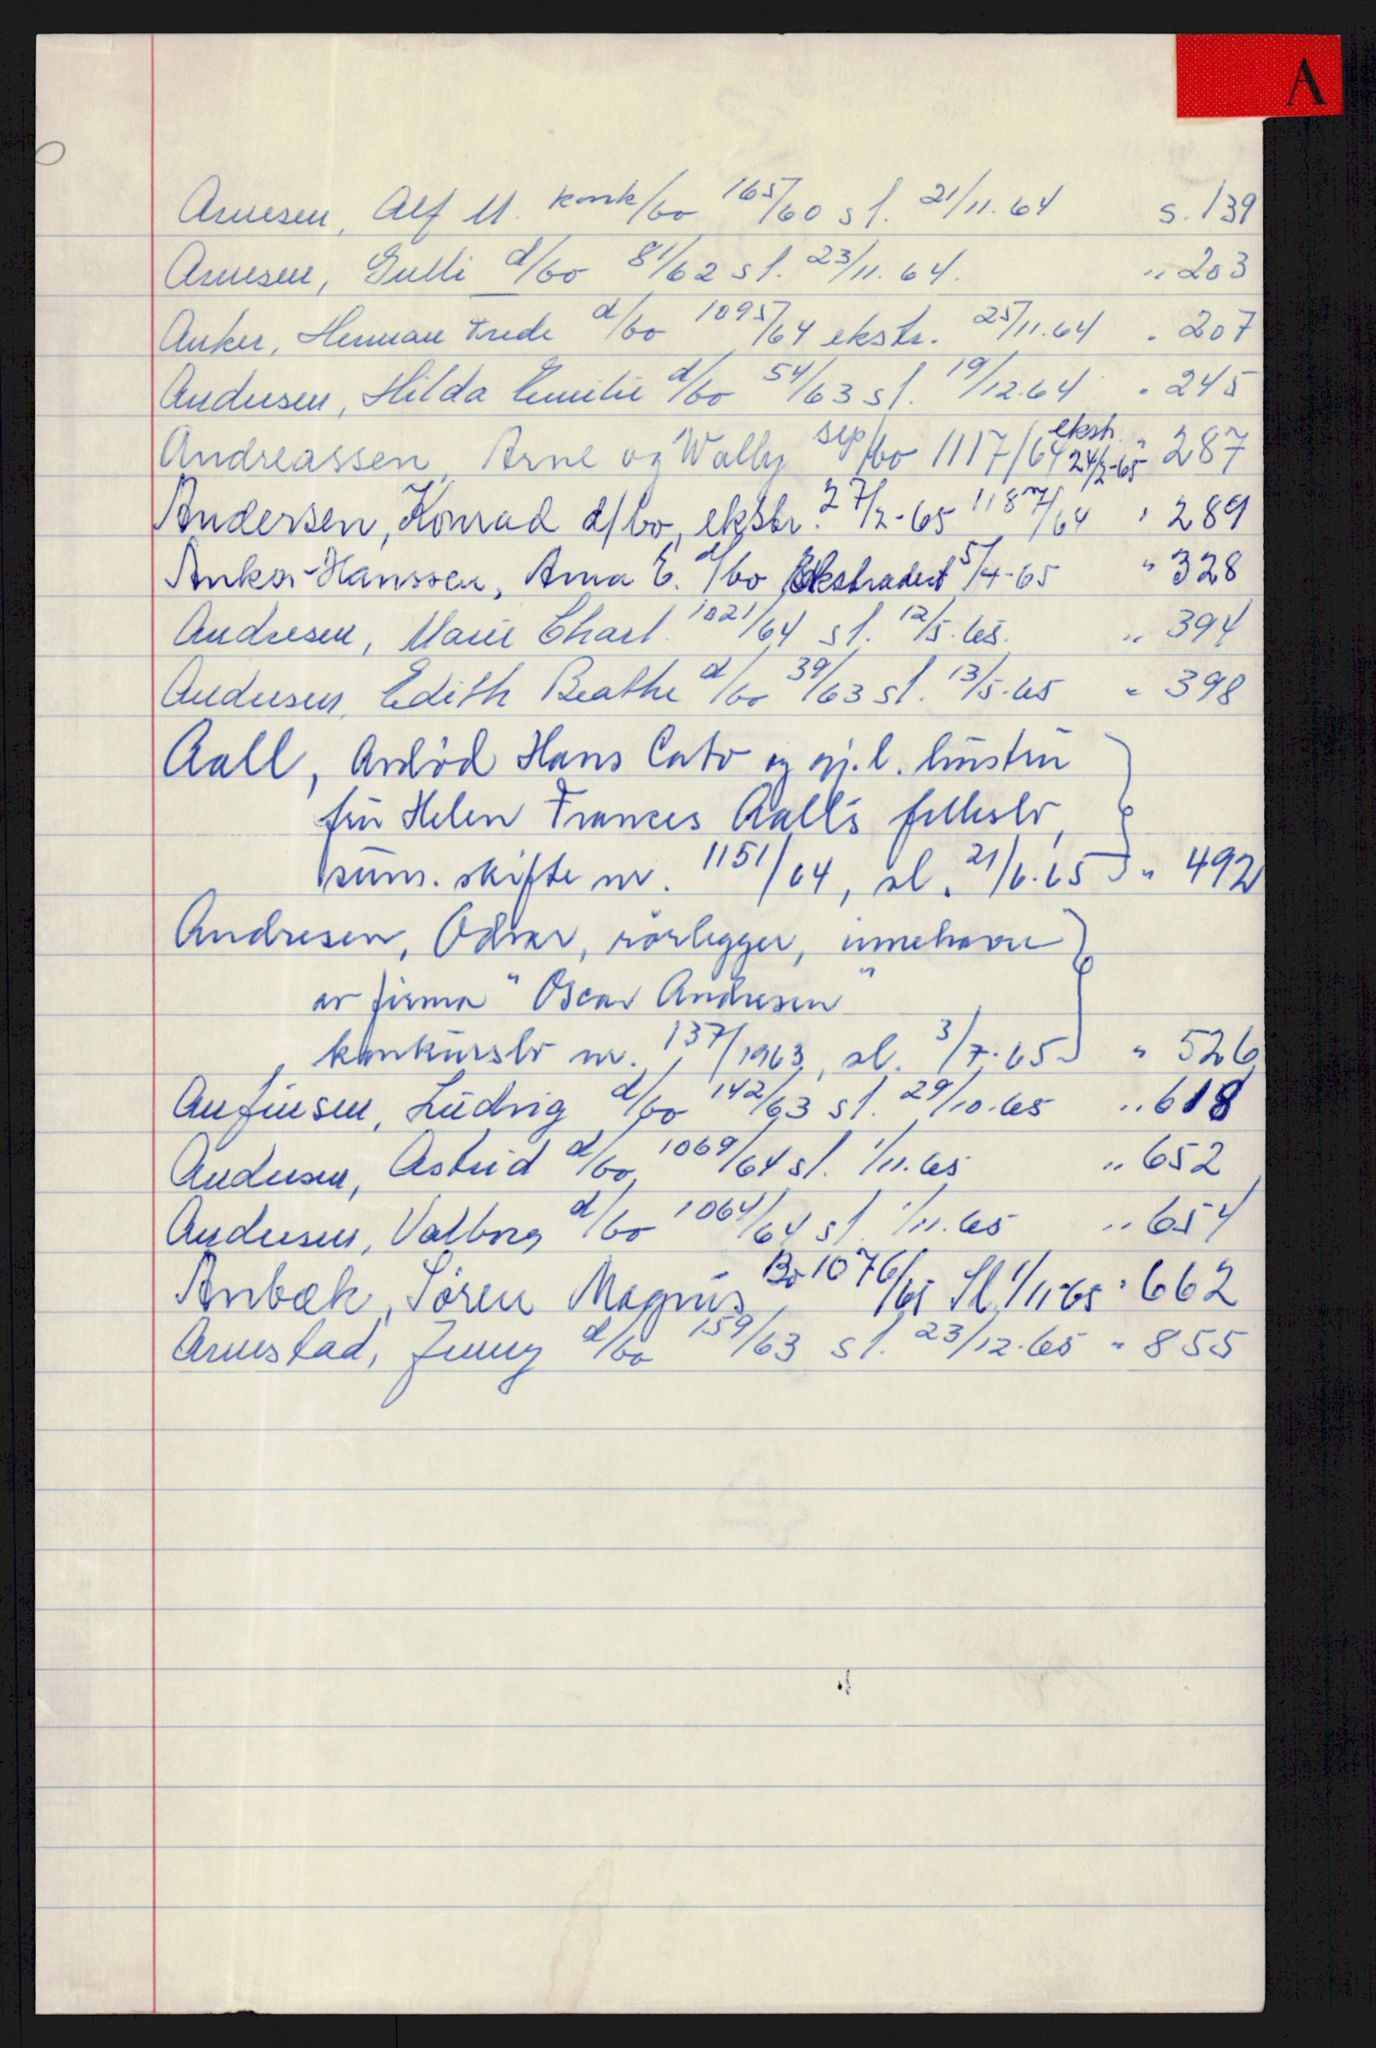 A
Arnesen, Alf M. konk/bo 165/60 sl. 21/11.64 s. 139
Arnesen, Gulli d/bo 81/62 sl. 23/11.64. " 203
Anker, Herman Frede d/bo 1095/64 ekstr. 25/11.64 " 207
Andersen, Hilda Emilie d/bo 54/63 sl. 19/12.64 " 245
Andreassen, Arne og Wally sep/bo 1117/64 ekstr. 24/2-65 " 287
Andersen, Konrad d/bo, ekstr. 27/2-65 1187/64 " 289
Anker-Hanssen, Anna E. d/bo Ekstradert 5/4-65 " 328
Andresen, Marie Charl. 1021/64 sl. 12/5.65. " 394
Andersen, Edith Beathe d/bo 39/63 sl. 13/5.65 " 398
Aall, Avdöd Hans Cato og gj.l. hustru
fru Helen Frances Aall's fellesbo,
sum. skifte nr. 1151/64, sl. 21/6.65 " 492
Andresen, Odvar, rörlegger, innehaver
av firma "Oscar Andresen"
konkursbo nr. 137/1963, sl. 3/7.65 " 526
Anfinsen, Ludvig d/bo 142/63 sl. 29/10.65 " 618
Andersen, Astrid d/bo 1069/64 sl. 1/11.65 " 652
Andersen, Valborg d/bo 1064/64 sl. 1/11.65 " 654
Anbæk, Sören Magnus Bo 1076/65 Sl 1/11-65 " 662
Arnestad, Jenny d/bo 159/63 sl. 23/12.65 " 855